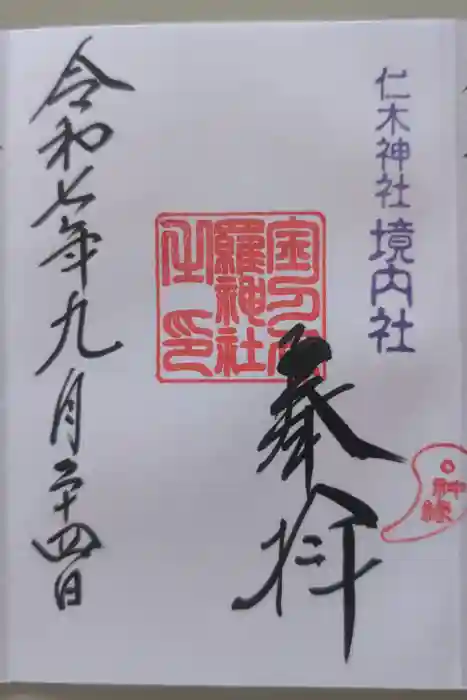 仁木神社 境内社
奉拝
神縁
金刀比
羅神社
之印
令和七年九月二十四日